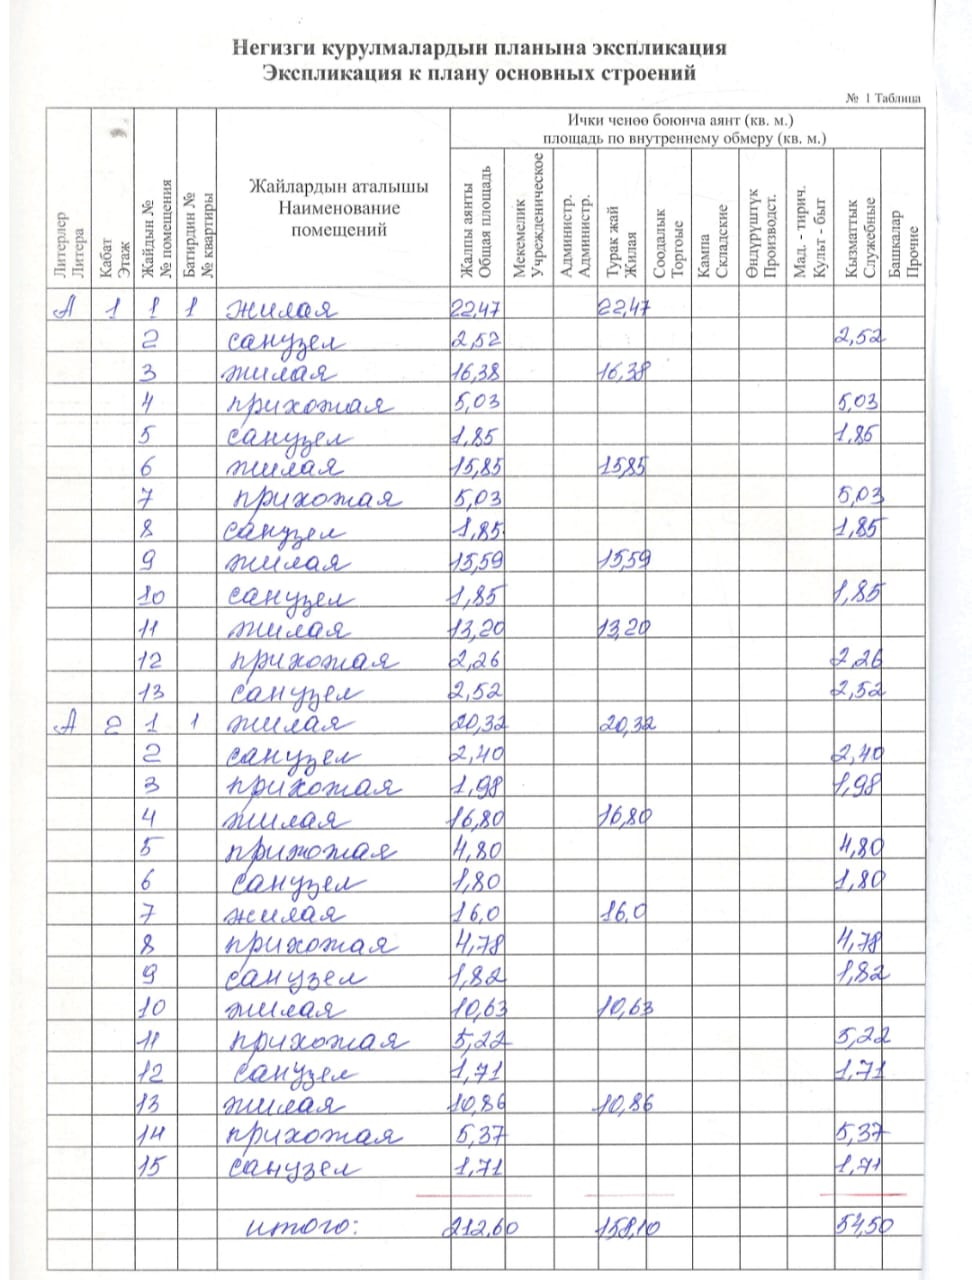 Негизги курулмалардын планына экспликация
Экспликация к плану основных строений
№ 1 Таблица
Литерлер Литера
Кабат Этаж
Жайдын № № помещения
Батирдин № № квартиры
Жайлардын аталышы
Наименование
помещений
Ички ченөө боюнча аянт (кв. м.)
площадь по внутреннему обмеру (кв. м.)
Жалпы аянты Общая площадь
Мекемелик Учрежденическое
Администр. Администр.
Турак жай Жилая
Соодалык Торгоые
Кампа Складские
Өндүрүштүк Производст.
Мад. - тирич. Культ - быт
Кызматтык Служебные
Башкалар Прочие
А 1 1 1 жилая 22,47 22,47
2 санузел 2,52 2,52
3 жилая 16,38 16,38
4 прихожая 5,03 5,03
5 санузел 1,85 1,85
6 жилая 15,85 1585
7 прихожая 5,03 5,03
8 санузел 1,85 1,85
9 жилая 15,59 15,59
10 санузел 1,85 1,85
11 жилая 13,20 13,20
12 прихожая 2,26 2,26
13 санузел 2,52 2,52
А 2 1 1 жилая 20,32 20,32
2 санузел 2,40 2,40
3 прихожая 1,98 1,98
4 жилая 16,80 16,80
5 прихожая 4,80 4,80
6 санузел 1,80 1,80
7 жилая 16,0 16,0
8 прихожая 4,78 4,78
9 санузел 1,82 1,82
10 жилая 10,63 10,63
11 прихожая 5,22 5,22
12 санузел 1,71 1,71
13 жилая 10,86 10,86
14 прихожая 5,37 5,37
15 санузел 1,71 1,71
итого: 212,60 158,10 54,50